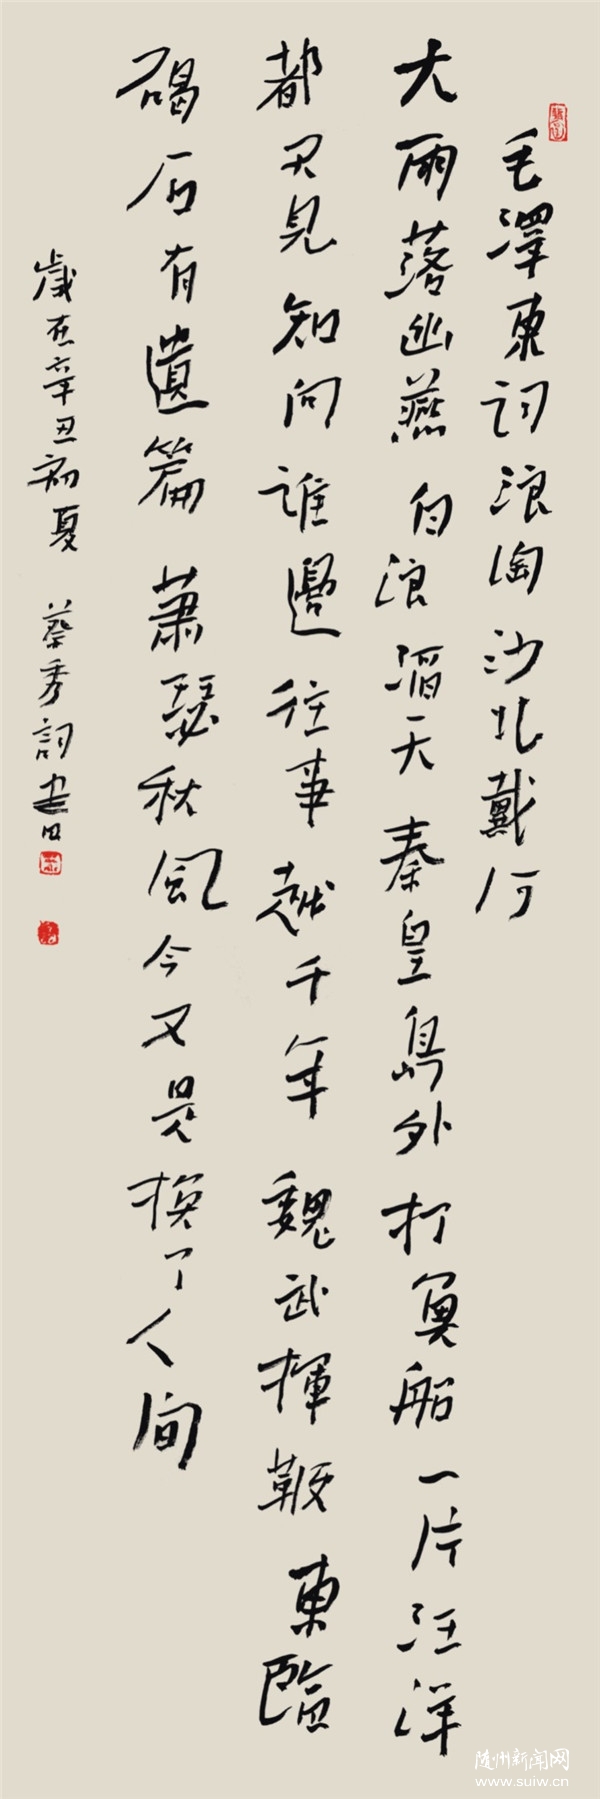 毛澤東詞浪淘沙北戴河
大雨落幽燕 白浪滔天 秦皇島外打魚船 一片汪洋
都不見 知向誰邊 往事越千年 魏武揮鞭 東臨
碣石有遺篇 蕭瑟秋風今又是 換了人間
歲在辛丑初夏 蔡秀詞書
随州新闻网
www.suiw.cn